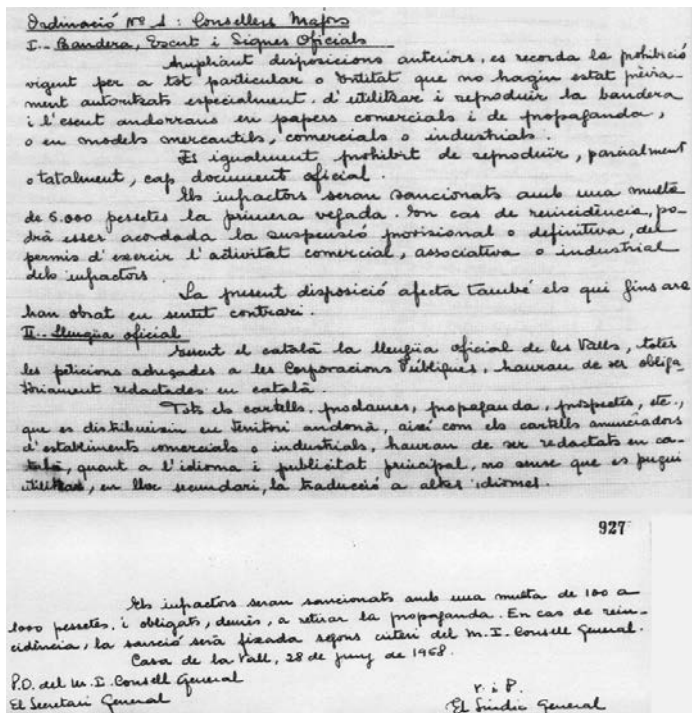 Ordinació Nº 1 : Consellers Majors
I.- Bandera, Escut i Signes Oficials
Ampliant disposicions anteriors, es recorda la prohibició
vigent per a tot particular o Entitat que no hagin estat prèvia-
ment autoritzats especialment, d'utilitzar i reproduir la bandera
i l'escut andorrans en papers comercials i de propaganda,
o en models mercantils, comercials o industrials.
Es igualment prohibit de reproduir, parcialment
o totalment, cap document oficial.
Els infractors seran sancionats amb una multa
de 5.000 pessetes la primera vegada. En cas de reincidència, po-
drà esser acordada la suspensió provisional o definitiva, del
permis d'exercir l'activitat comercial, associativa o industrial
dels infractors.
La present disposició afecta també els qui fins ara
han obrat en sentit contrari.
II.- Llengüa oficial
Essent el català la llengüa oficial de les Valls, totes
les peticions adreçades a les Corporacions Públiques, hauran de ser obliga-
tòriament redactades en català.
Tots els cartells, proclames, propaganda, prospectes, etc.,
que es distribueixin en territori andorrà, així com els cartells anunciadors
d'establiments comercials o industrials, hauran de ser redactats en ca-
talà, quant a l'idioma i publicitat principal, no sense que es pugui
utilitzar, en lloc secundari, la traducció a altres idiomes.
927
Els infractors seran sancionats amb una multa de 100 a
1000 pessetes, i obligats, demés, a retirar la propaganda. En cas de rein-
cidència, la sanció serà fixada segons criteri del M. I. Consell General.
Casa de la Vall, 28 de juny de 1968.
P.O. del M. I. Consell General
El Secretari General
V. i P.
El Síndic General